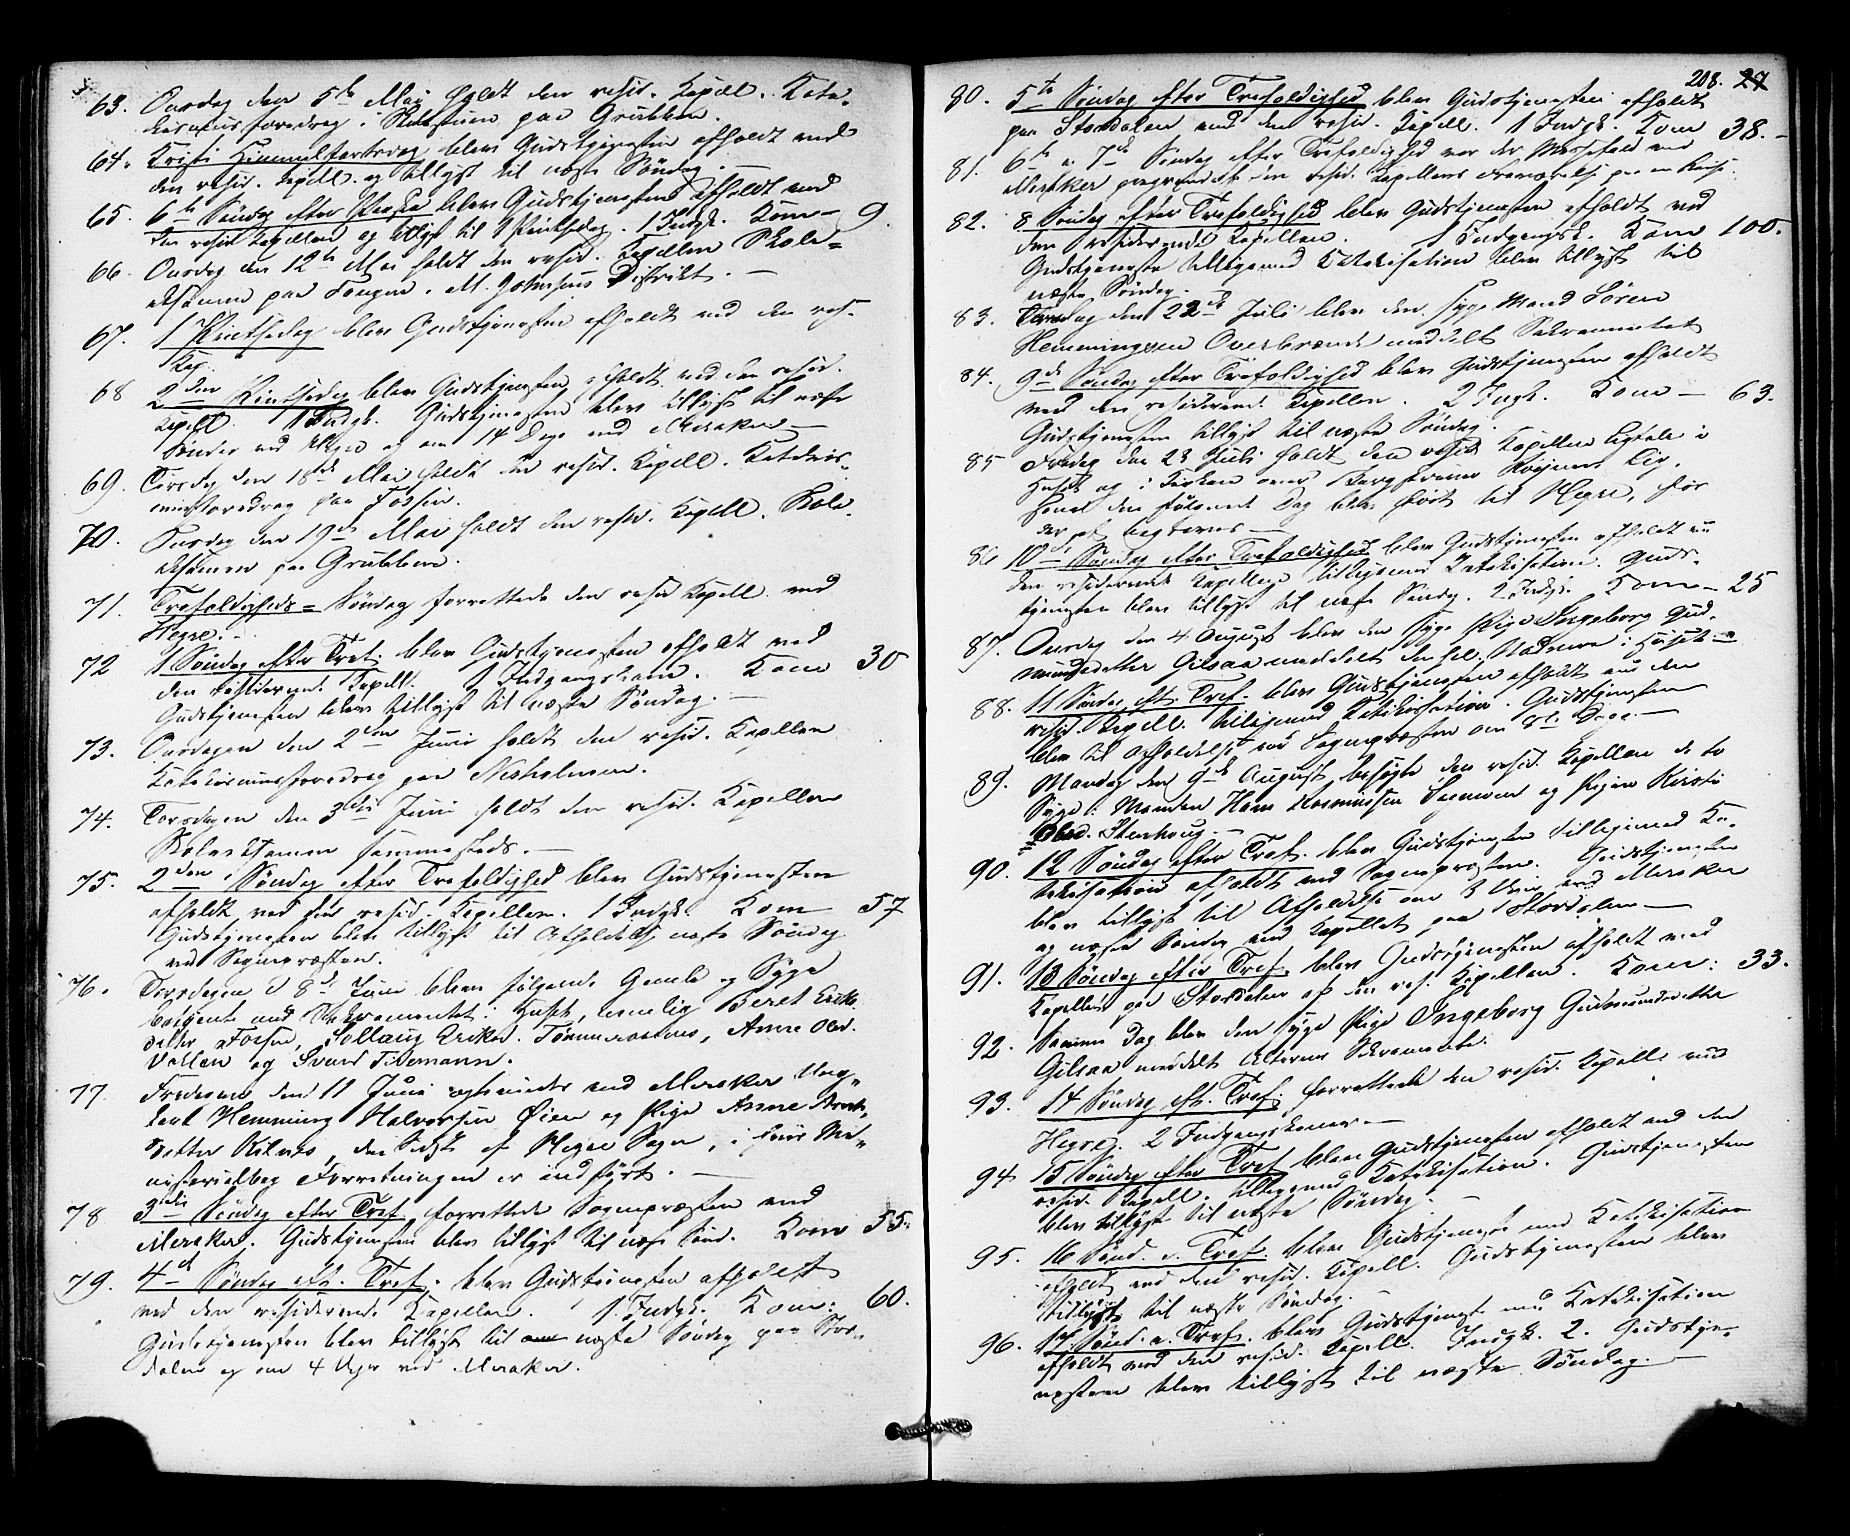 63. Onsdag den 5te Mai holdt den resid. Kapell. Kate-
kismusforedrag i Skolestuen paa Grubben.
64. Kristi Himmelfartsdag blev Gudstjenesten afholdt ved
den resid. Kapell. og tillyst til næste Søndag.
65. 6te Søndag efter Paaske blev Gudstjenesten afholdt ved
den resid Kapellan og tillyst til 1 Pintsedag. 1 Indgk. Kom— 9.
66. Onsdag den 12te Mai holdt den resid. Kapellan Skole-
eksamen paa Tongen. M. Johnsens Distrikt. —
67. 1 Pintsedag blev Gudstjenesten afholdt ved den res.
Kap.
68 2den Pintsedag blev Gudstjenesten afholdt ved den resid.
Kapell. 1 Indgk. Gudstjenesten blev tillyst til næste
Søndag ved Hegre og om 14 Dage ved Meraker—
69. Tirsdag den 18de Mai holdt den resid. Kapell. Katekis-
musforedrag paa Fossen.
70. Onsdag den 19de Mai holdt den resid. Kapell. Skole-
eksamen paa Grubben.
71. Trefoldigheds= Søndag forrettede den resid Kapell. ved
Hegre. —
72 1 Søndag efter Tref. blev Gudstjenesten afholdt ved
den residerende Kapell. 1 Indgangskone. Kom 30
Gudstjenesten blev tillyst til næste Søndag. —
73. Onsdagen den 2den Juni holdt den resid. Kapellan
Katekismusforedrag paa
74. Torsdagen den 3die Juni holdt den resid. Kapellan
Skoleeksamen sammesteds. —
75. 2den Søndag efter Trefoldighed blev Gudstjenesten
afholdt ved den resid. Kapellan. 1 Indgk. Kom 57
Gudstjenesten blev tillyst til Afholdelse næste Søndag
ved Sognepræsten.
76. Torsdagen d 8de Juni bleve følgende Gamle og Syge
betjente med Sakramentet: Husk, nemlig Beret Eriks-
datter Fossen, Sollaug Eriks. Anne Olsd.
Vollen og Svend Tidemann.
77. Fredagen den 11 Juni ved Meraker Ung-
karl Hemming Halvorsen Øien og Pige Anne Arnts-
datter Kilnes, den Sidste af Hegre Sogn, i hvis Mi-
nisterialbog Forretningen er indført. —
78 3die Søndag efter Tref. forrettede Sognepræsten ved
Meraker. Gudstjenesten blev tillyst til næste Sønd. Kom 55.
79. 4de Søndag eft. Tref. blev Gudstjenesten afholdt
ved den residerende Kapellan. 1. Indgk. Kom: 60.
Gudstjenesten blev tillyst til næste Søndag paa Stor-
dalen og om 4 Uger ved Meraker.
208. 27
80. 5te Søndag efter Trefoldighed blev Gudstjenesten afholdt
paa Stordalen ved den resid. Kapell. 1 Indgk. Kom 38.—
81. 6te og 7de Søndag efter Trefoldighed var der Messefald ved
Meraker paagrund af den resid. Kapellans Fraværelse paa en Reise.
82. 8 Søndag efter Trefoldighed blev Gudstjenesten afholdt ved
den residerende Kapellan. 1 Indgangsk. Kom 100.
Gudstjeneste tilligemed Katekisation blev tillyst til
næste Søndag.
83. Torsdag den 22de Juli blev den syge Mand Søren
Hemmingsen Overbrænde meddelt Sakramentet
84. 9de Søndag efter Trefoldighed blev Gudstjenesten afholdt
ved den residerende Kapellan. 2 Ingk. Kom — 63.
Gudstjenesten tillyst til næste Søndag.
85 Fredag den 23 Juli holdt den resid Kapellan Ligtale i
Huset og i Kirken over Lig,
hvad den følgende Dag blev ført til Hegre, før
det at begraves—
86 10de Søndag efter Trefoldighed blev Gudstjenesten afholdt ved
den residerende Kapellan tilligemed Katekisation. Guds-
tjenesten blev tillyst til næste Søndag. 2 Indgk. Kom— 25
87. Onsdag den 4 August blev den syge Pige Ingeborg Gud-
mundsdatter Gilsaa meddelt den hel. Nadvere i Huset—
88. 11 Søndag eft. Tref. blev Gudstjenesten afholdt ved den
resid. Kapell. tilligemed Katekisation. Gudstjenesten
blev til Afholdelse ved Sognepræsten om 8te Dage.—
89. Mandag den 9de August besøgte den resid. Kapellan de to
Syge: Manden Hans Rasmussen og Pigen Kirsti
Olsd. Stenhoug. —
90. 12 Søndag efter Tref. blev Gudstjenesten tilligemed Ka-
tekisation afholdt ved Sognepræsten. Gudstjenesten
blev tillyst til Afholdelse om 3 Uger ved Meraker
og næste Søndag ved Kapellet paa Stordalen—
91. 13 Søndag efter Tref. blev Gudstjenesten afholdt ved
Kapellet paa Stordalen af den res. Kapellan. Kom: 33.
92. Samme Dag blev den syge Pige Ingeborg Gudmundsdatter
Gilsaa meddelt Alterens Sakramente.
93. 14 Søndag eft. Tref. forrettede den resid. Kapell. ved
Hegre. 2 Indgangskoner—
94 15 Søndag efter Tref blev Gudstjenesten afholdt ved den
resid. Kapell. tilligemed Katekisation. Gudstjenesten
blev tillyst til næste Søndag. —
95. 16 Sønd. e. Tref. blev Gudstjeneste med Katekisation
afholdt ved den resid. Kapell. Gudstjenesten blev
tillyst til næste Søndag. —
96. 17 Sønd. e. Tref. blev Gudstjenest med Katekisation
afholdt ved den resid. Kapell. Indgk. 2. Gudstje-
nesten blev tillyst til næste Søndag. —